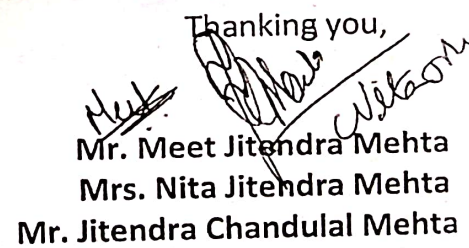 Thanking you,
Meet
Mr. Meet Jitendra Mehta
Mrs. Nita Jitendra Mehta
Mr. Jitendra Chandulal Mehta